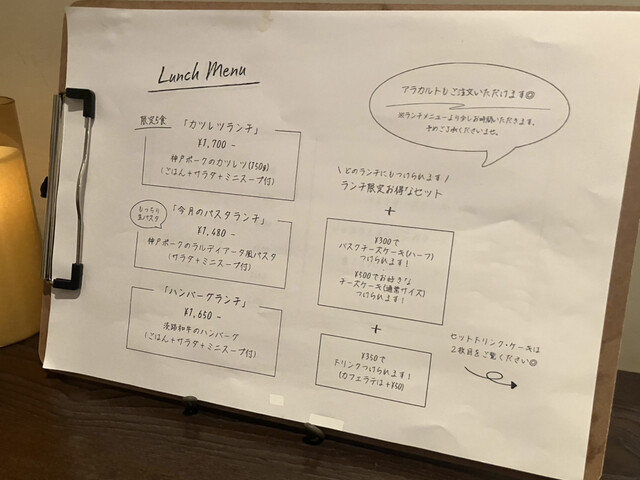 Lunch Menu
限定5食
「カツレツランチ」
¥1,700-
神戸ポークのカツレツ(150g)
(ごはん+サラダ+ミニスープ付)
もっちり
生パスタ
「今月のパスタランチ」
¥1,480-
神戸ポークのラルディアータ風パスタ
(サラダ+ミニスープ付)
「ハンバーグランチ」
¥1,650-
淡路和牛のハンバーグ
(ごはん+サラダ+ミニスープ付)
アラカルトもご注文いただけます◎
※ランチメニューより少しお時間いただきます。
そのご了承くださいませ。
\ どのランチにもつけられます /
ランチ限定お得なセット
+
¥300で
バスクチーズケーキ(ハーフ)
つけられます!
¥500でお好きな
チーズケーキ(通常サイズ)
つけられます!
+
¥350で
ドリンクつけられます!
(カフェラテは+¥50)
セットドリンク・ケーキは
2枚目をご覧ください◎